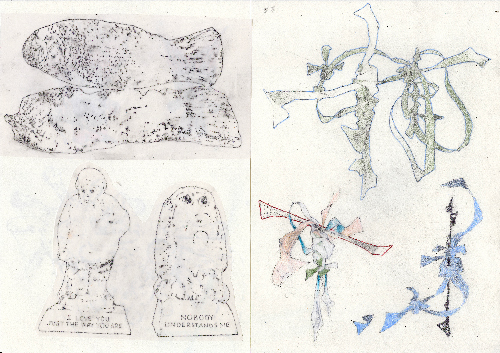 I LOVE YOU
JUST THE WAY YOU ARE
NOBODY
UNDERSTANDS ME